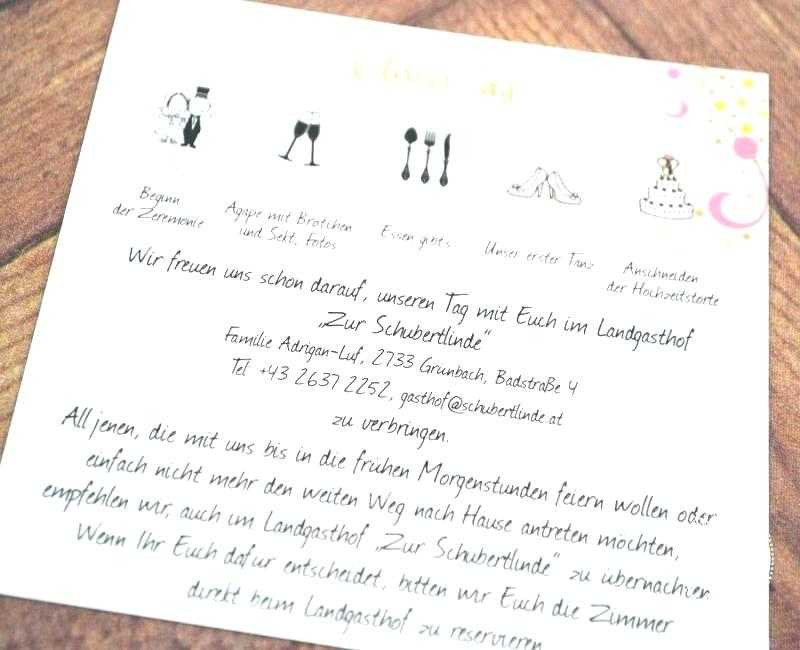 Beginn
der Zeremonie
Agape mit Brötchen
und Sekt, Fotos
Essen gibt's
Unser erster Tanz
Anschneiden
der Hochzeitstorte
Wir freuen uns schon darauf, unseren Tag mit Euch im Landgasthof
„Zur Schubertlinde“
Familie Adrigan-Luf, 2733 Grünbach, Badstraße 4
Tel +43 2637 2252, gasthof@schubertlinde.at
zu verbringen.
All jenen, die mit uns bis in die frühen Morgenstunden feiern wollen oder
einfach nicht mehr den weiten Weg nach Hause antreten möchten,
empfehlen wir, auch im Landgasthof „Zur Schubertlinde“ zu übernachten.
Wenn Ihr Euch dafür entscheidet, bitten wir Euch die Zimmer
direkt beim Landgasthof zu reservieren